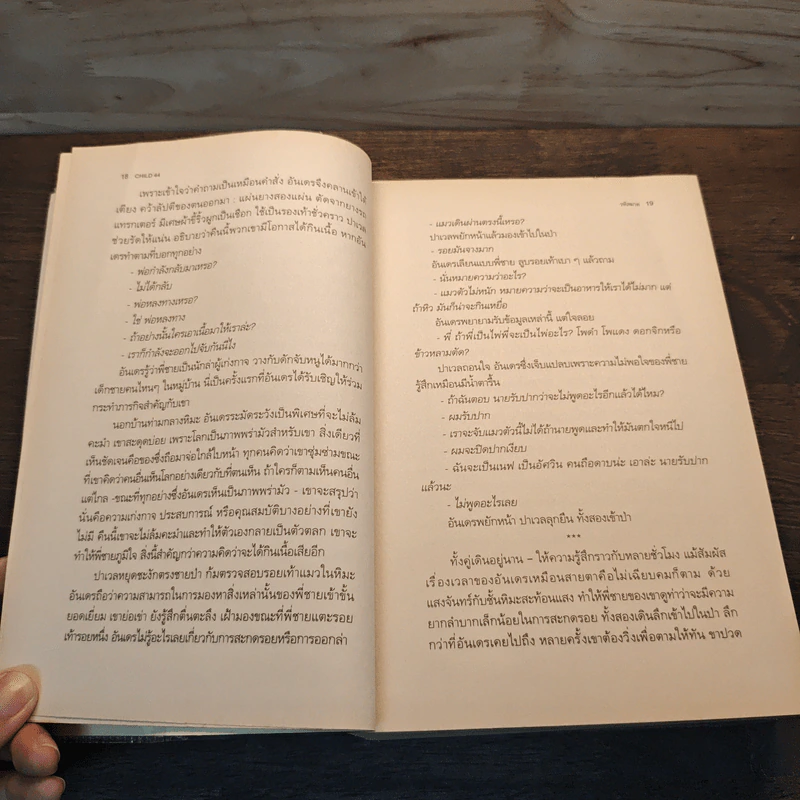 18 CHILD 44
เพราะเข้าใจว่าคำถามเป็นเหมือนคำสั่ง อันเดรจึงคลานเข้าใต้
เตียง คว้าลัปติของตนออกมา : แผ่นยางสองแผ่น ตัดจากยางรถ
แทรกเตอร์ มีเศษผ้าขี้ริ้วผูกเป็นเชือก ใช้เป็นรองเท้าชั่วคราว ปาเวล
ช่วยรัดให้แน่น อธิบายว่าคืนนี้พวกเขามีโอกาสได้กินเนื้อ หากอัน
เดรทำตามที่บอกทุกอย่าง
- พ่อกำลังกลับมาเหรอ?
- ไม่ได้กลับ
- พ่อหลงทางเหรอ?
- ใช่ พ่อหลงทาง
- ถ้าอย่างนั้นใครเอาเนื้อมาให้เราล่ะ?
- เราก็กำลังจะออกไปจับกันนี่ไง
อันเดรรู้ว่าพี่ชายเป็นนักล่าผู้เก่งกาจ วางกับดักจับหนูได้มากกว่า
เด็กชายคนไหนๆ ในหมู่บ้าน นี่เป็นครั้งแรกที่อันเดรได้รับเชิญให้ร่วม
กระทำภารกิจสำคัญกับเขา
นอกบ้านท่ามกลางหิมะ อันเดรระมัดระวังเป็นพิเศษที่จะไม่ล้ม
คะมำ เขาสะดุดบ่อย เพราะโลกเป็นภาพพร่ามัวสำหรับเขา สิ่งเดียวที่
เห็นชัดเจนคือของซึ่งถือมาจ่อใกล้ใบหน้า ทุกคนคิดว่าเขาซุ่มซ่ามขณะ
ที่เขาคิดว่าคนอื่นเห็นโลกอย่างเดียวกับที่ตนเห็น ถ้าใครก็ตามเห็นคนอื่น
แต่ไกล -ขณะที่ทุกอย่างซึ่งอันเดรเห็นเป็นภาพพร่ามัว - เขาจะสรุปว่า
นั่นคือความเก่งกาจ ประสบการณ์ หรือคุณสมบัติบางอย่างที่เขายัง
ไม่มี คืนนี้เขาจะไม่ล้มคะมำและทำให้ตัวเองกลายเป็นตัวตลก เขาจะ
ทำให้พี่ชายภูมิใจ สิ่งนี้สำคัญกว่าความคิดว่าจะได้กินเนื้อเสียอีก
ปาเวลหยุดชะงักตรงชายป่า ก้มตรวจสอบรอยเท้าแมวในหิมะ
อันเดรถือว่าความสามารถในการมองหาสิ่งเหล่านั้นของพี่ชายเข้าขั้น
ยอดเยี่ยม เขาย่อเข่า ยังรู้สึกตื่นตะลึง เฝ้ามองขณะที่พี่ชายแตะรอย
เท้ารอยหนึ่ง อันเดรไม่รู้อะไรเลยเกี่ยวกับการสะกดรอยหรือการออกล่า
19
- แมวเดินผ่านตรงนี้เหรอ?
ปาเวลพยักหน้าแล้วมองเข้าไปในป่า
- รอยมันจางมาก
อันเดรเลียนแบบพี่ชาย ลูบรอยเท้าเบา ๆ แล้วถาม
- นั่นหมายความว่าอะไร?
- แมวตัวไม่หนัก หมายความว่าจะเป็นอาหารให้เราได้ไม่มาก แต่
ถ้าหิว มันก็น่าจะกินเหยื่อ
อันเดรพยายามรับข้อมูลเหล่านี้ แต่ใจลอย
- พี่ ถ้าพี่เป็นไพ่พี่จะเป็นไพ่อะไร? โพดำ โพแดง ดอกจิกหรือ
ข้าวหลามตัด?
ปาเวลถอนใจ อันเดรซึ่งเจ็บแปลบเพราะความไม่พอใจของพี่ชาย
รู้สึกเหมือนมีน้ำตารื้น
- ถ้าฉันตอบ นายรับปากว่าจะไม่พูดอะไรอีกแล้วได้ไหม?
- ผมรับปาก
- เราจะจับแมวตัวนี้ไม่ได้ถ้านายพูดและทำให้มันตกใจหนีไป
- ผมจะปิดปากเงียบ
- ฉันจะเป็นเนฟ เป็นอัศวิน คนถือดาบน่ะ เอาล่ะ นายรับปาก
แล้วนะ
- ไม่พูดอะไรเลย
อันเดรพยักหน้า ปาเวลลุกยืน ทั้งสองเข้าป่า
***
ทั้งคู่เดินอยู่นาน – ให้ความรู้สึกราวกับหลายชั่วโมง แม้สัมผัส
เรื่องเวลาของอันเดรเหมือนสายตาคือไม่เฉียบคมก็ตาม ด้วย
แสงจันทร์กับชั้นหิมะสะท้อนแสง ทำให้พี่ชายของเขาดูท่าว่าจะมีความ
ยากลำบากเล็กน้อยในการสะกดรอย ทั้งสองเดินลึกเข้าไปในป่า ลึก
กว่าที่อันเดรเคยไปถึง หลายครั้งเขาต้องวิ่งเพื่อตามให้ทัน ขาปวด